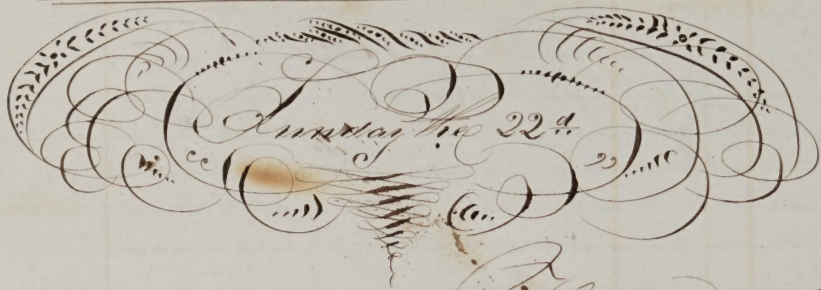 Sunday the 22d.